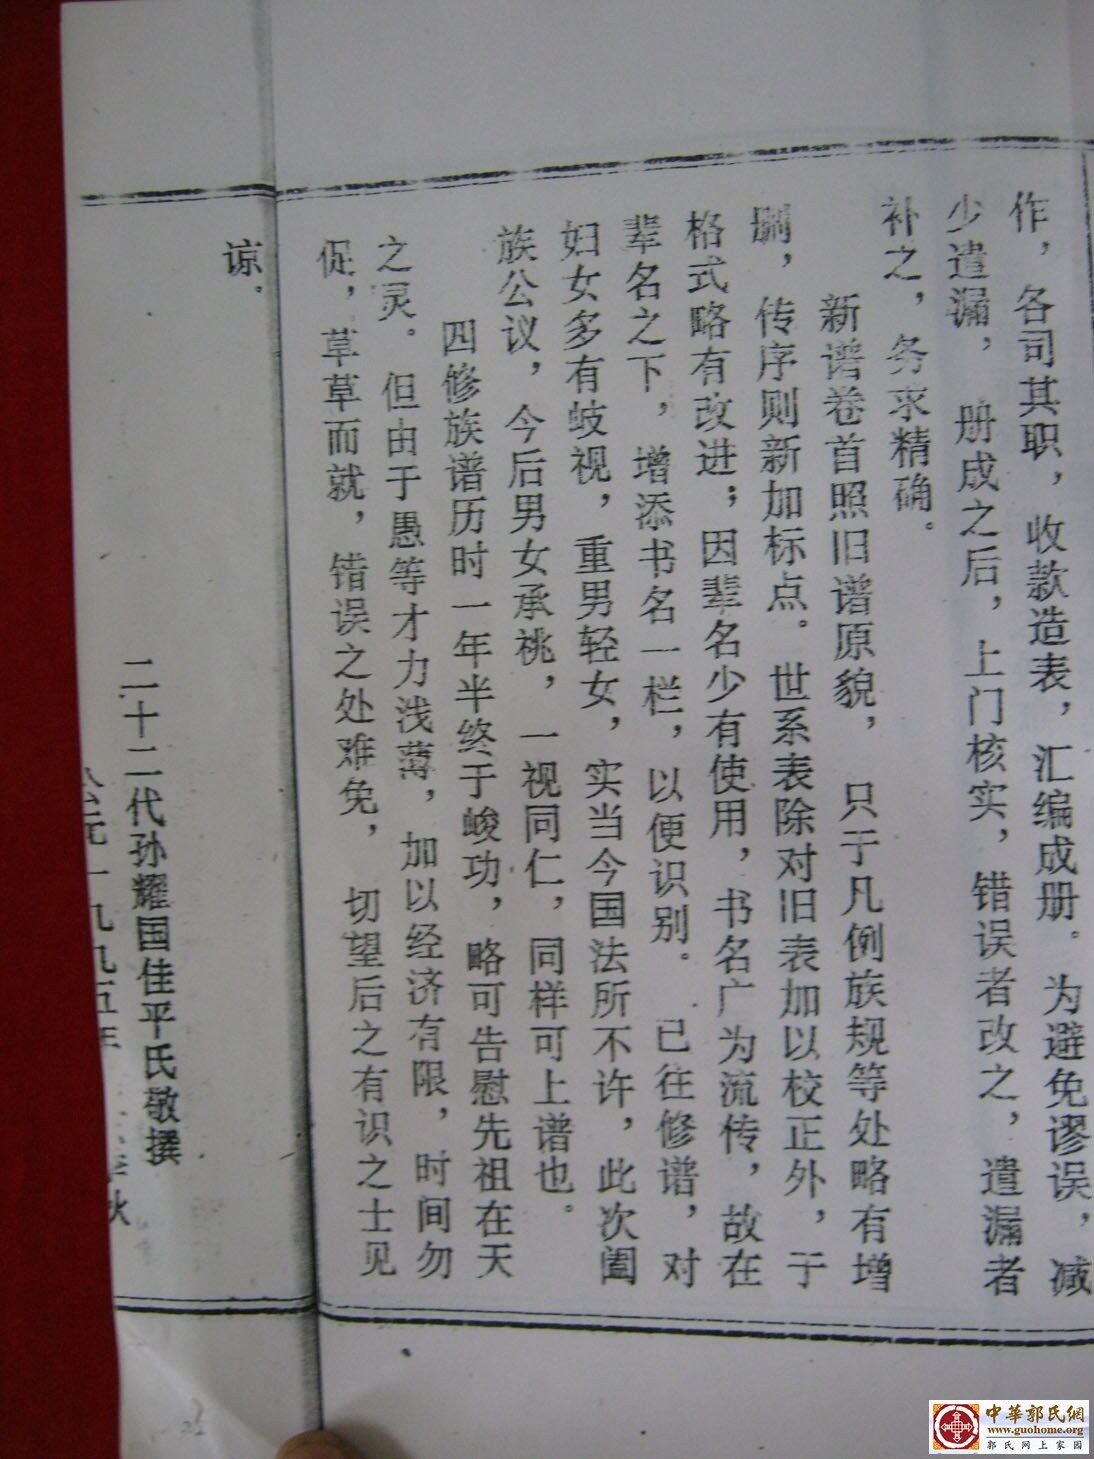 作，各司其职，收款造表，汇编成册。为避免谬误，减
少遣漏，册成之后，上门核实，错误者改之，遣漏者
补之，务求精确。
新谱卷首照旧谱原貌，只于凡例族规等处略有增
删，传序则新加标点。世系表除对旧表加以校正外，于
格式略有改进；因辈名少有使用，书名广为流传，故在
辈名之下，增添书名一栏，以便识别。已往修谱，对
妇女多有岐视，重男轻女，实当今国法所不许，此次阖
族公议，今后男女承桃，一视同仁，同样可上谱也。
四修族谱历时一年半终于峻功，略可告慰先祖在天
之灵。但由于愚等才力浅薄，加以经济有限，时间勿
促，草草而就，错误之处难免，切望后之有识之士见
谅。
二十二代孙耀国佳平氏敬撰
公元一九九五年 季秋
中華郭氏網
www.guohome.org
郭氏网上家园